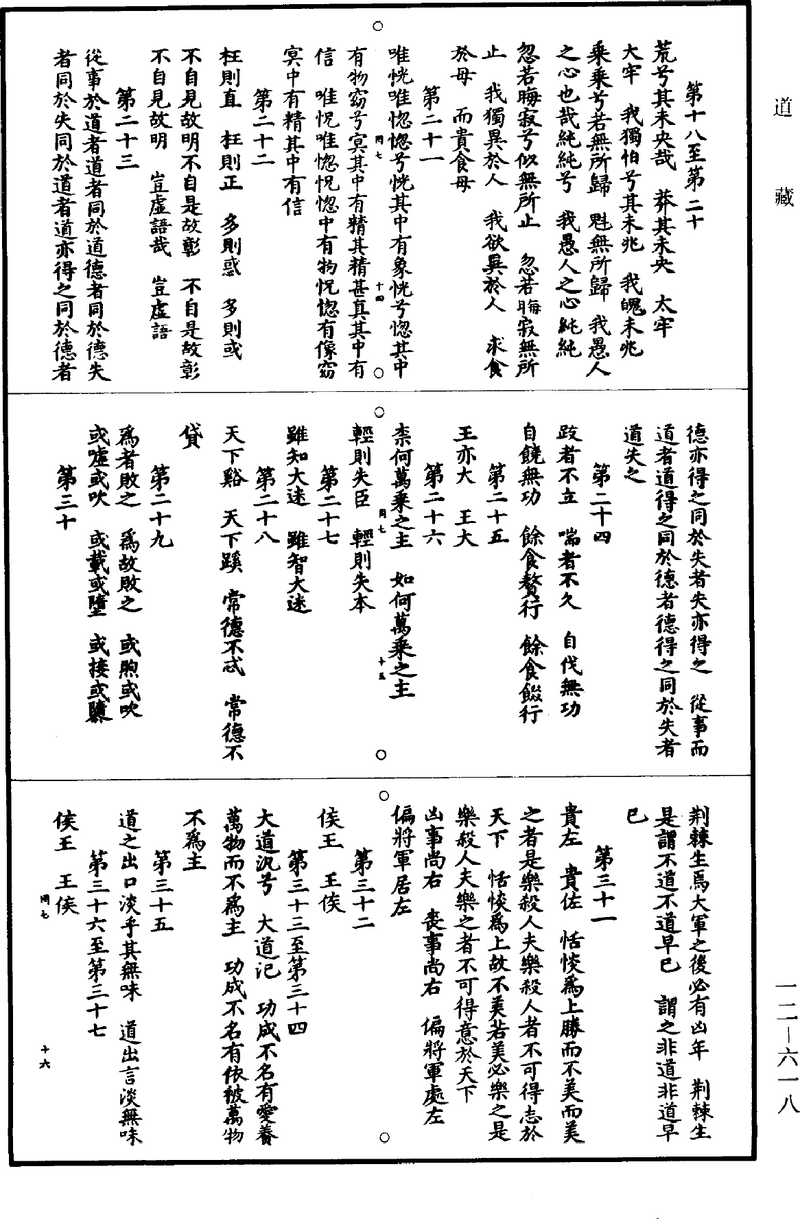 道藏
第十八至第二十
荒兮其未央哉　莽其未央　太牢
大牢　我獨怕兮其未兆　我魄未兆
乘乘兮若無所歸　魁無所歸　我愚人
之心也哉純純兮　我愚人之心純純
忽若晦寂兮似無所止　忽若晦寂無所
止　我獨異於人　我欲異於人　求食
於母　而貴食母
第二十一
唯恍唯惚惚兮恍其中有象恍兮惚其中
有物窈兮冥其中有精其精甚真其中有
信　唯怳唯惚怳惚中有物怳惚有像窈
冥中有精其中有信
第二十二
枉則直　枉則正　多則惑　多則或
不自見故明不自是故彰　不自是故彰
不自見故明　豈虛語哉　豈虛語
第二十三
從事於道者道者同於道德者同於德失
者同於失同於道者道亦得之同於德者
同七
十四
德亦得之同於失者失亦得之　從事而
道者道得之同於德者德得之同於失者
道失之
第二十四
跂者不立　喘者不久　自伐無功
自饒無功　餘食贅行　餘食餟行
第二十五
王亦大　王大
第二十六
柰何萬乘之主　如何萬乘之主
輕則失臣　輕則失本
第二十七
雖知大迷　雖智大迷
第二十八
天下谿　天下蹊　常德不忒　常德不
貸
第二十九
爲者敗之　爲故敗之　或呴或吹
或噓或吹　或載或墮　或接或隳
第三十
同七
十五
荆棘生焉大軍之後必有凶年　荆棘生
是謂不道不道早已　謂之非道非道早
已
第三十一
貴左　貴佐　恬惔爲上勝而不美而美
之者是樂殺人夫樂殺人者不可得志於
天下　恬惔爲上故不美若美必樂之是
樂殺人夫樂之者不可得意於天下
凶事尚右　喪事尚右　偏將軍處左
偏將軍居左
第三十二
侯王　王侯
第三十三至第三十四
大道汎兮　大道氾　功成不名有愛養
萬物而不爲主　功成不名有依被萬物
不爲主
第三十五
道之出口淡乎其無味　道出言淡無味
第三十六至第三十七
侯王　王侯
同七
十六
一二—六一八